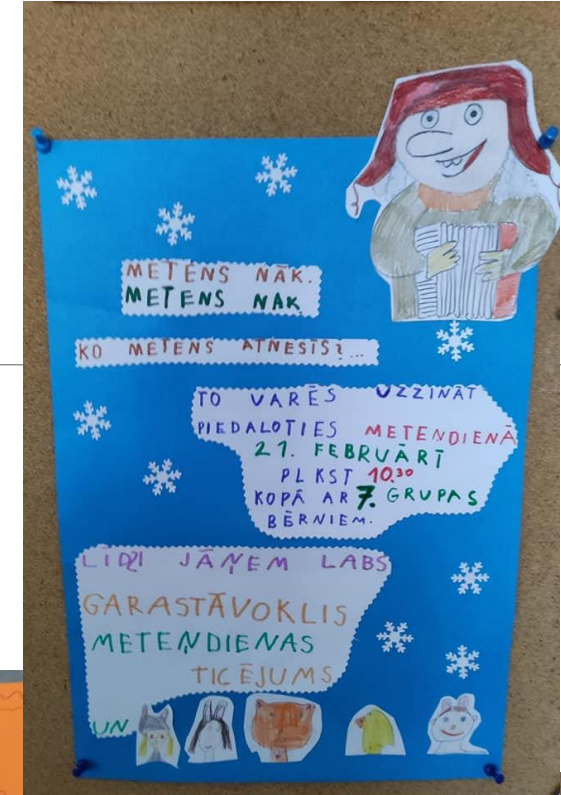 METENS NĀK.
METENS NĀK
KO METENS ATNESĪS?...
TO VARĒS UZZINĀT
PIEDALOTIES METEŅDIENĀ
21. FEBRUĀRĪ
PLKST 10.30
KOPĀ AR 7. GRUPAS
BĒRNIEM.
LĪDZI JĀŅEM LABS
GARASTĀVOKLIS
METEŅDIENAS
TICĒJUMS
UN